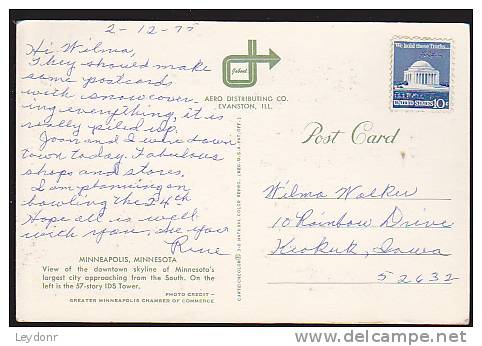 2-12-75
Hi Wilma,
They should make
some postcards
with snow cover-
ing everything, it is
really piled up.
Joan and I were down
town today. Fabulous
shops and stores.
I am planning on
bowling the 24th
Hope all is well
with you, see you
MINNEAPOLIS, MINNESOTA
View of the downtown skyline of Minnesota's
largest city approaching from the South. On
the left is the 57-story IDS Tower.
PHOTO CREDIT –
GREATER MINNEAPOLIS CHAMBER OF COMMERCE
AERO DISTRIBUTING CO.
EVANSTON, ILL.
We hold these Truths...
UNITED STATES 10c
Post Card
Wilma Walker
10 Rainbow Drive
Keokuk, Iowa
52632
Leydonr
www.delcampe.net